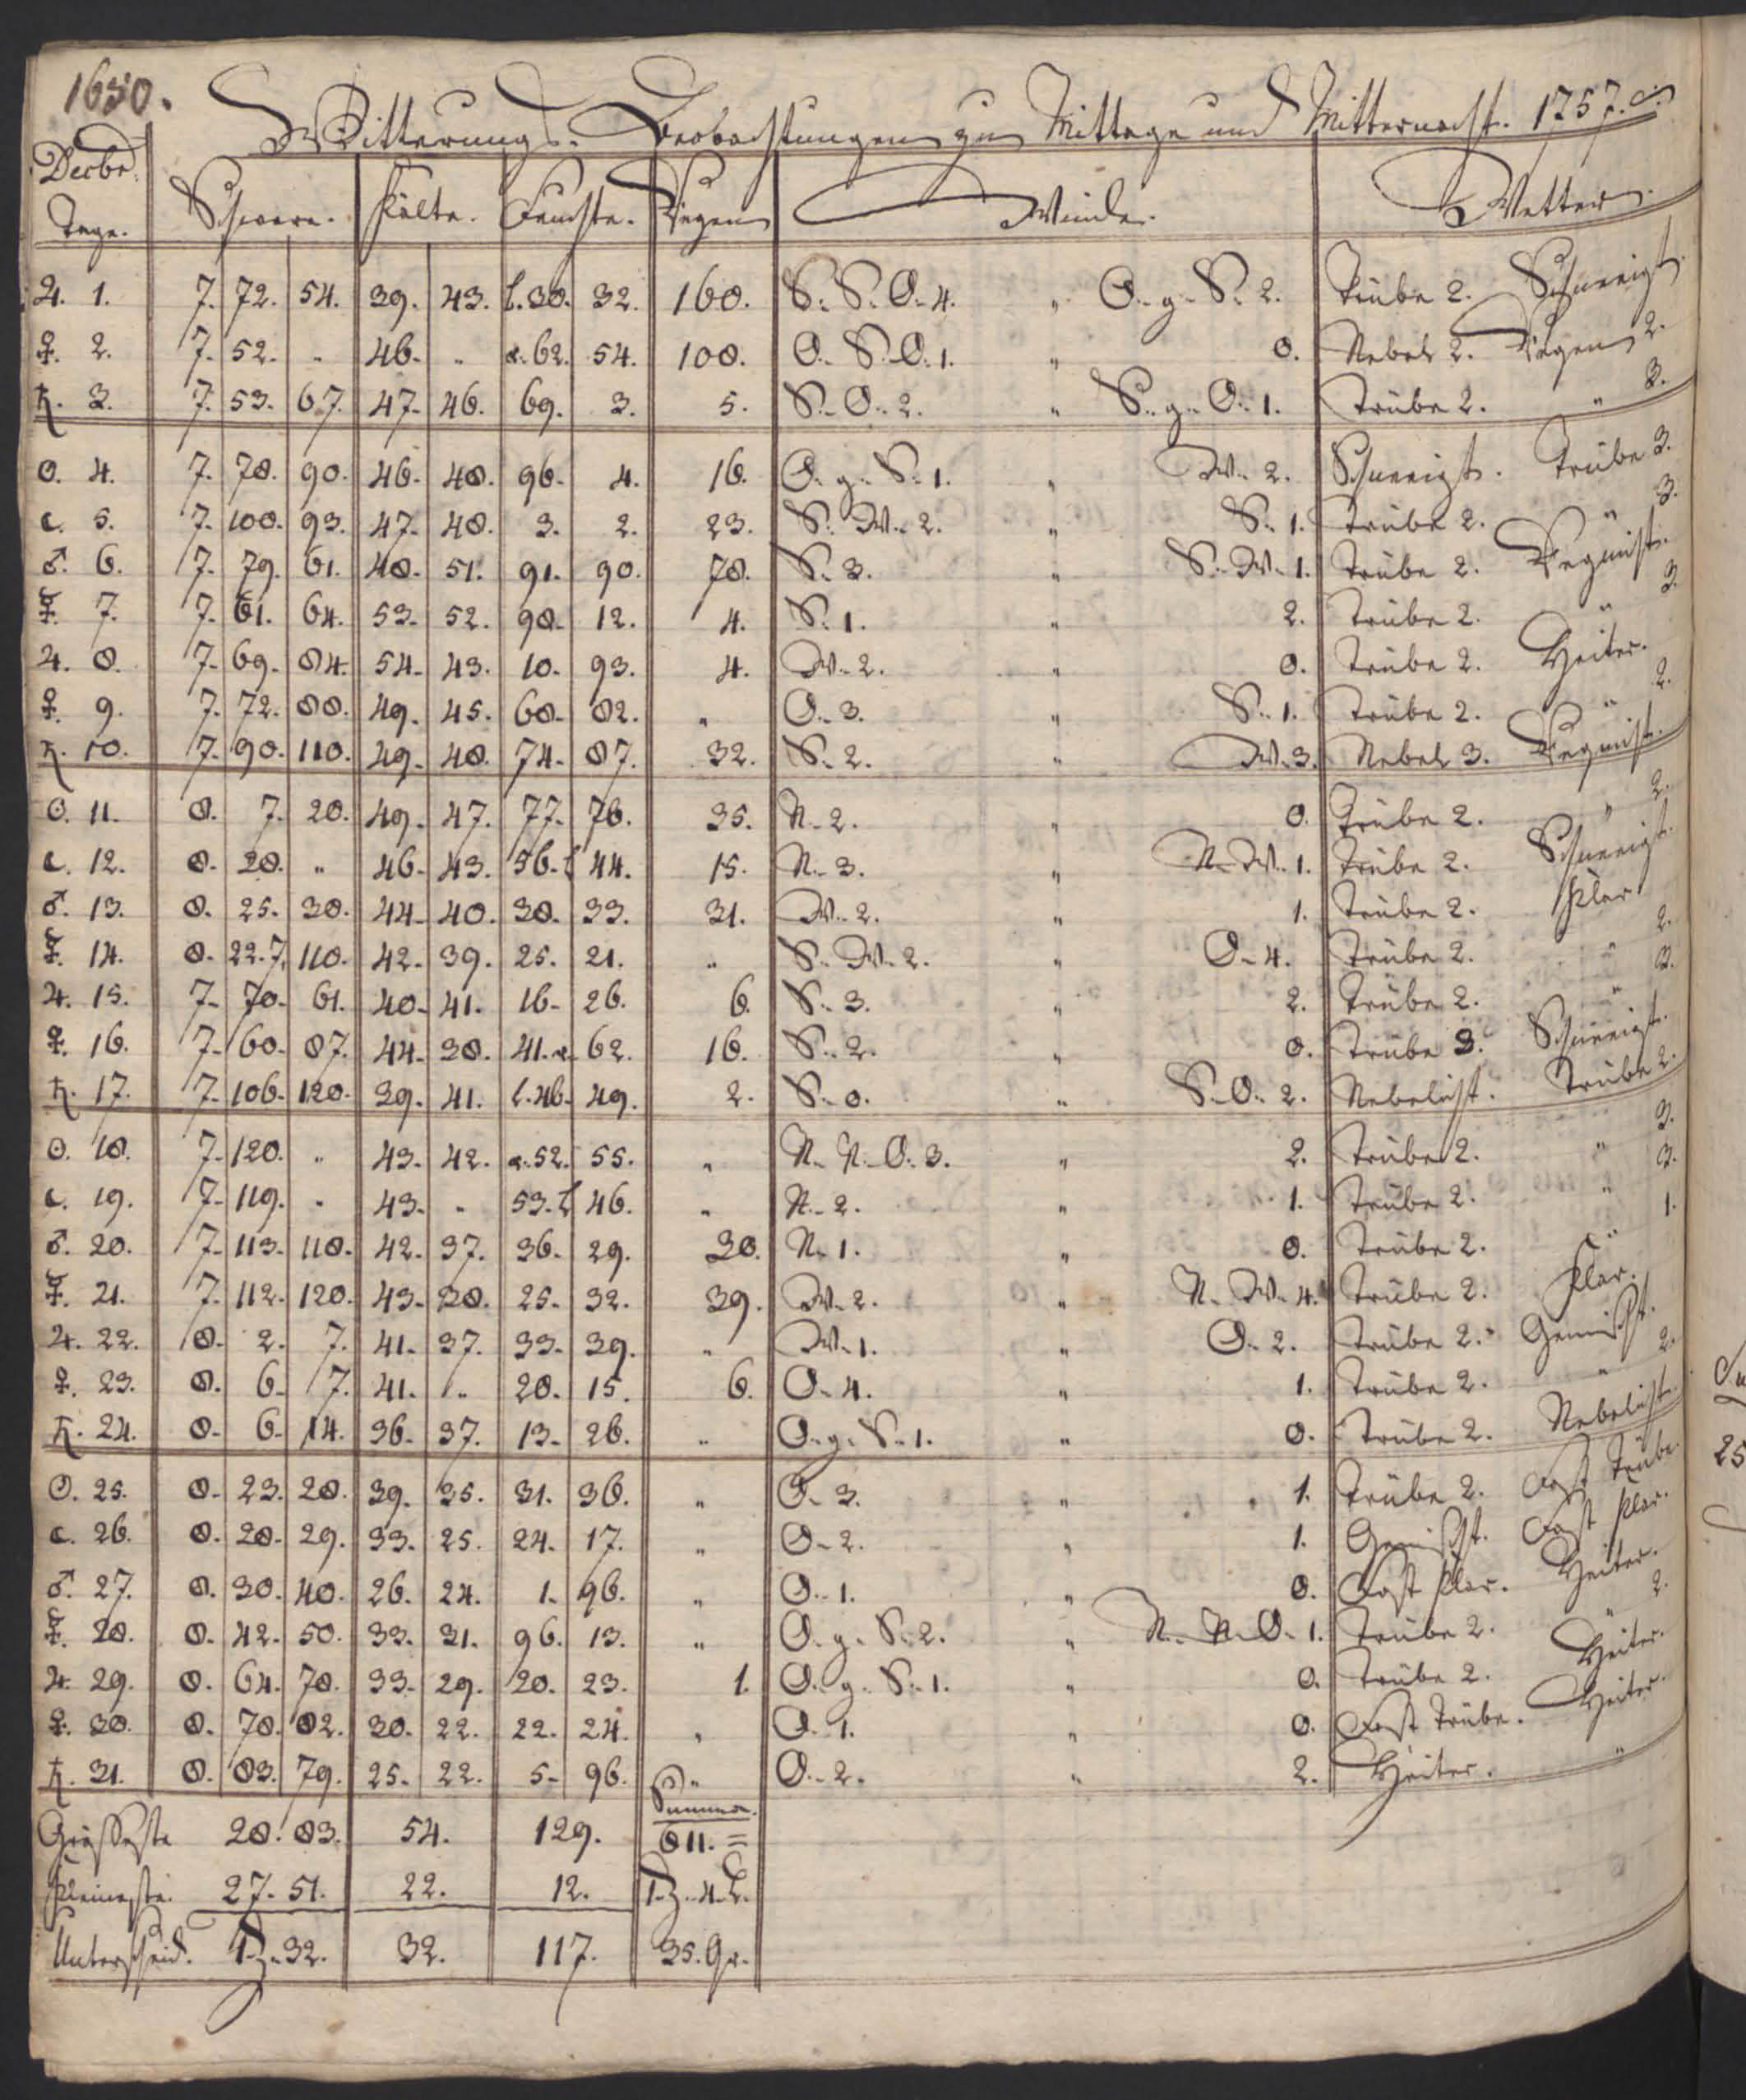 1650.
Witterungs-Beobachtungen zu Mittage und Mitternacht. 1757.
Decbr. Tage. Schwere. Kälte. Feuchte. Regen Winde. Wetter.
♃. 1. 7. 72. 54. 39. 43. l. 38. 32. 160. S. S. O. 4. „ O. g. S. 2. Trübe 2. Schneeigt.
♀. 2. 7. 52. „ 46. „ a. 62. 54. 108. O. S. O. 1. „ 0. Nebel 2. Regen 2.
♄. 3. 7. 53. 67. 47. 46. 69. 3. 5. S. O. 2. „ S. g. O. 1. Trübe 2. „ 3.
☉. 4. 7. 78. 90. 46. 48. 96. 4. 16. O. g. S. 1. „ W. 2. Schneeigt. Trübe 3.
☾. 5. 7. 100. 93. 47. 48. 3. 2. 23. S. W. 2. „ S. 1. Trübe 2. „ 3.
♂. 6. 7. 79. 61. 48. 51. 91. 90. 78. S. 3. „ S. W. 1. Trübe 2. Regnicht.
☿. 7. 7. 61. 64. 53. 52. 98. 12. 4. S. 1. „ 2. Trübe 2. „ 3.
♃. 8. 7. 69. 84. 54. 43. 10. 93. 4. W. 2. „ 0. Trübe 2. Heiter.
♀. 9. 7. 72. 88. 49. 45. 68. 82. „ O. 3. „ S. 1. Trübe 2. „ 2.
♄. 10. 7. 90. 110. 49. 48. 74. 87. 32. S. 2. „ W. 3. Nebel 3. Regnicht.
☉. 11. 8. 7. 20. 49. 47. 77. 76. 35. N. 2. „ 0. Trübe 2. „ 2.
☾. 12. 8. 28. „ 46. 43. 56. l 44. 15. N. 3. „ N. W. 1. Trübe 2. Schneeigt.
♂. 13. 8. 25. 30. 44. 40. 38. 33. 31. W. 2. „ 1. Trübe 2. Klar.
☿. 14. 8. 22. 7. 110. 42. 39. 25. 21. „ S. W. 2. „ O. 4. Trübe 2. „ 2.
♃. 15. 7. 70. 61. 40. 41. 16. 26. 6. S. 3. „ 2. Trübe 2. „ 3.
♀. 16. 7. 60. 87. 44. 38. 41. a. 62. 16. S. 2. „ 0. Trübe 3. Schneeigt.
♄. 17. 7. 106. 120. 39. 41. l. 46. 49. 2. S. 0. „ S. O. 2. Nebelicht. Trübe 2.
☉. 18. 7. 120. „ 43. 42. a. 52. 55. „ N. N. O. 3. „ 2. Trübe 2. „ 3.
☾. 19. 7. 119. „ 43. „ 53. l 46. „ N. 2. „ 1. Trübe 2. „ 3.
♂. 20. 7. 113. 118. 42. 37. 36. 29. 30. N. 1. „ 0. Trübe 2. „ 1.
☿. 21. 7. 112. 120. 43. 38. 25. 32. 39. W. 2. „ N. W. 4. Trübe 2. Klar.
♃. 22. 8. 2. 7. 41. 37. 33. 39. „ W. 1. „ O. 2. Trübe 2. Gemischt.
♀. 23. 8. 6. 7. 41. „ 20. 15. 6. O. 4. „ 1. Trübe 2. „ 2.
♄. 24. 8. 6. 14. 36. 37. 13. 26. „ O. g. S. 1. „ 0. Trübe 2. Nebelicht.
☉. 25. 8. 23. 28. 39. 35. 31. 36. „ O. 3. „ 1. Trübe 2. Fast Trübe.
☾. 26. 8. 28. 29. 33. 25. 24. 17. „ O. 2. „ 1. Gemischt. Fast Klar.
♂. 27. 8. 30. 40. 26. 24. 1. 96. „ O. 1. „ 0. Fast Klar. Heiter.
☿. 28. 8. 42. 50. 33. 31. 96. 13. „ O. g. S. 2. „ N. N. O. 1. Trübe 2. „ 2.
♃. 29. 8. 64. 78. 33. 29. 20. 23. 1. O. g. S. 1. „ 0. Trübe 2. Heiter.
♀. 30. 8. 78. 82. 30. 22. 22. 24. „ O. 1. „ 0. Fast Trübe. Heiter.
♄. 31. 8. 83. 79. 25. 22. 5. 96. „ O. 2. „ 2. Heiter. „
Summa.
Größeste 28. 83. 54. 129. 811. =
Kleineste. 27. 51. 22. 12. 1. Z. 4. L.
Unterscheid. 1. Z. 32. 32. 117. 35. Gr.
25